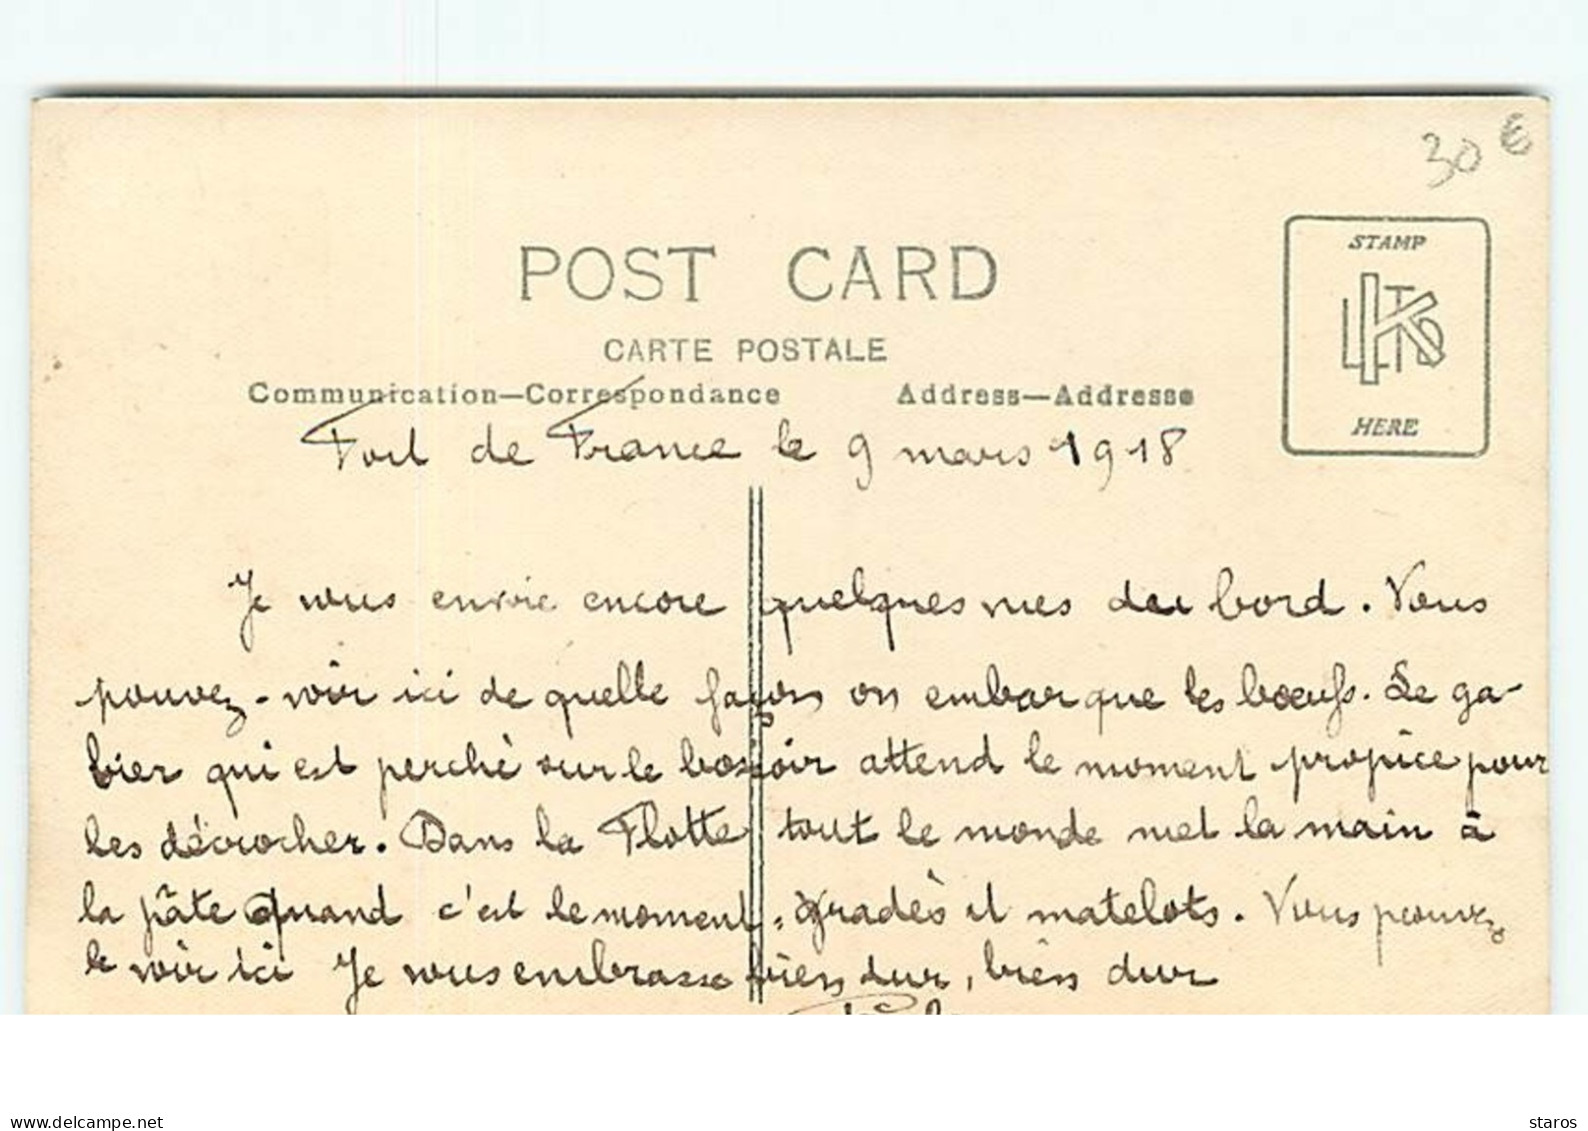 30 €
POST CARD
CARTE POSTALE
Communication—Correspondance Address—Addresse
STAMP
LKTD
HERE
Fort de France le 9 mars 1918
Je vous envoie encore quelques vues du bord. Vous
pouvez-voir ici de quelle façon on embarque les bœufs. Le ga-
bier qui est perché sur le bossoir attend le moment propice pour
les décrocher. Dans la Flotte tout le monde met la main à
la pâte quand c'est le moment, gradés et matelots. Vous pouvez
le voir ici Je vous embrasse bien dur, bien dur
www.delcampe.net
staros